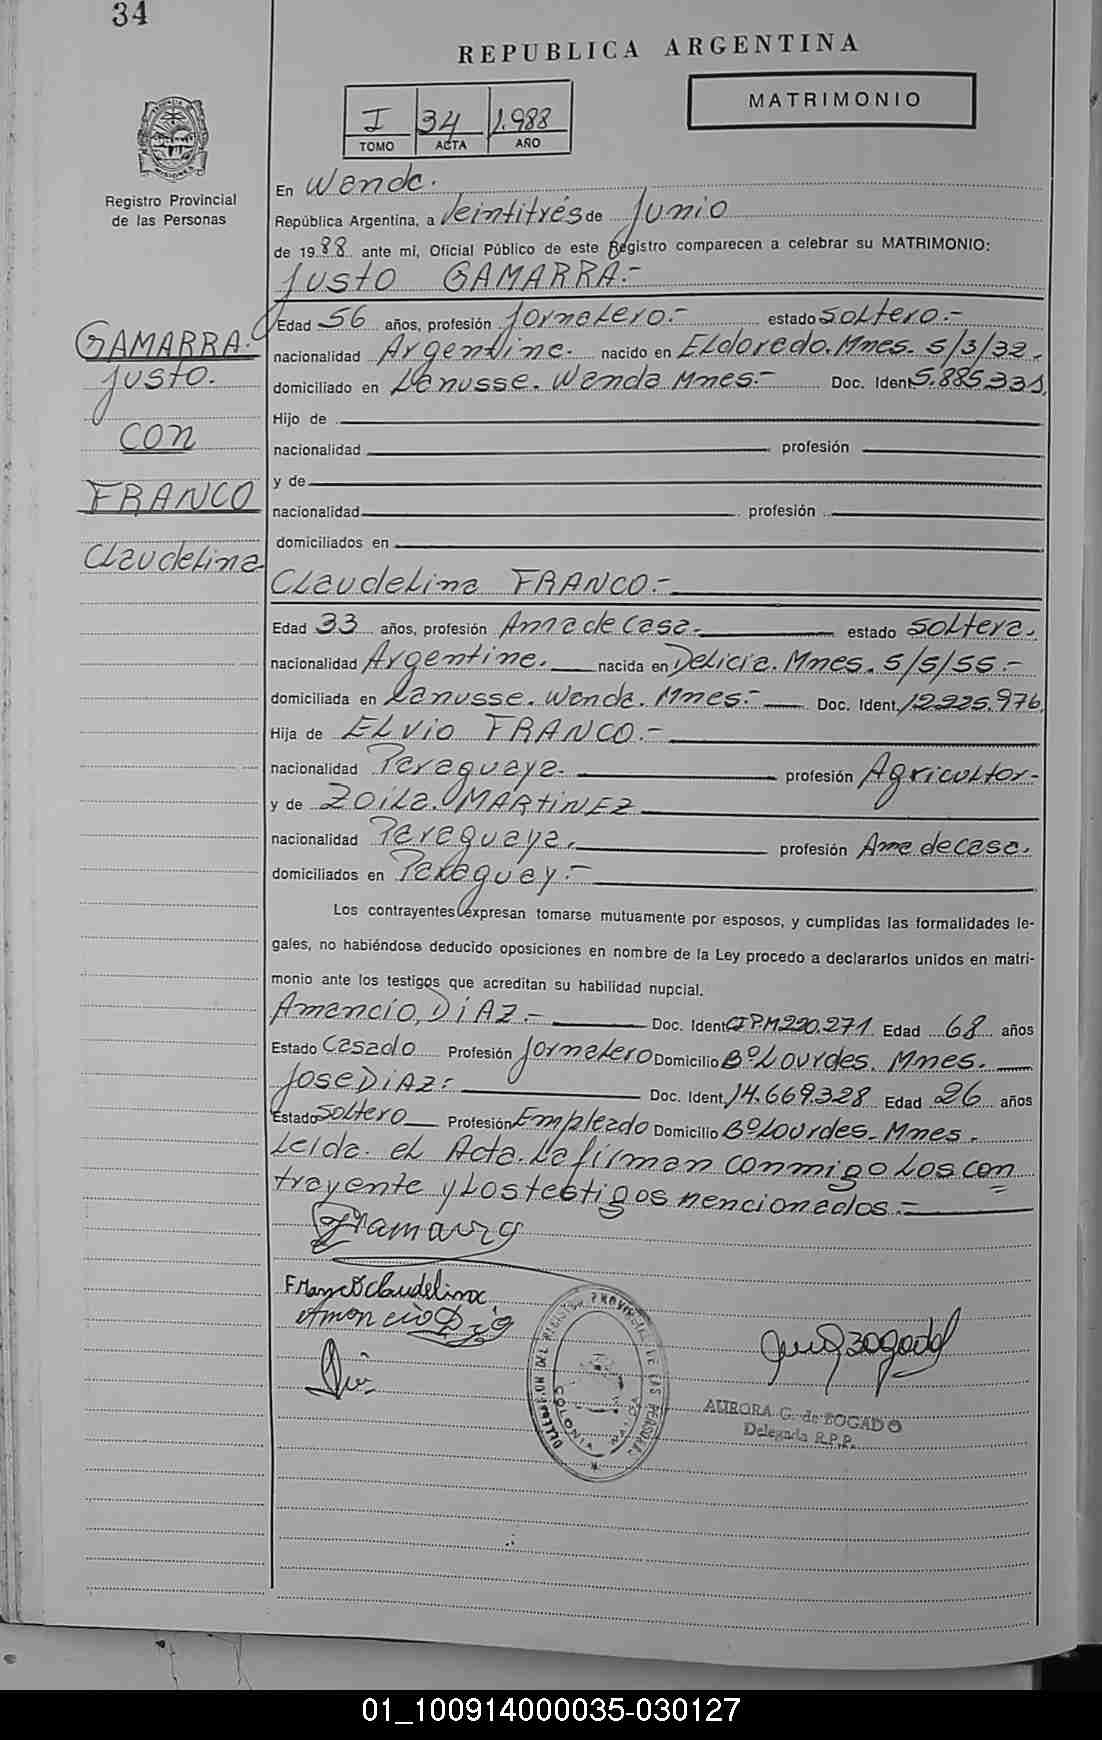 34
REPUBLICA ARGENTINA
I 34 1.988
TOMO ACTA AÑO
MATRIMONIO
Registro Provincial
de las Personas
En Wanda.
República Argentina, a Veintitrés de Junio
de 1988 ante mi, Oficial Público de este Registro comparecen a celebrar su MATRIMONIO:
Justo GAMARRA.-
GAMARRA.
Justo.
CON
FRANCO
Claudelina
Edad 56 años, profesión Jornalero.- estado soltero.-
nacionalidad Argentina. nacido en Eldorado. Mnes. 5/3/32.
domiciliado en Lanusse. Wanda Mnes.- Doc. Ident. 5.885331
Hijo de
nacionalidad profesión
y de
nacionalidad profesión
domiciliados en
Claudelina FRANCO.-
Edad 33 años, profesión Ama de Casa. estado soltera.
nacionalidad Argentina. nacida en Delicia. Mnes. 5/5/55.-
domiciliada en Lanusse. Wanda. Mnes.- Doc. Ident. 12.225.976
Hija de ELVIO FRANCO.-
nacionalidad Paraguaya. profesión Agricultor-
y de ZOILA. MARTINEZ
nacionalidad Paraguaya. profesión Ama de casa.
domiciliados en Paraguay.-
Los contrayentes expresan tomarse mutuamente por esposos, y cumplidas las formalidades le-
gales, no habiéndose deducido oposiciones en nombre de la Ley procedo a declararlos unidos en matri-
monio ante los testigos que acreditan su habilidad nupcial.
Amancio, DIAZ.- Doc. Ident. CIP.M220.271 Edad 68 años
Estado Casado Profesión Jornalero Domicilio Bº Lourdes. Mnes.
Jose DIAZ.- Doc. Ident. 14.669.328 Edad 26 años
Estado soltero Profesión Empleado Domicilio Bº Lourdes. Mnes.
Leida. el Acta. La firman conmigo los con
trayente y los testigos nencionados.=
Gamarra
Franco Claudelina
Amoncio Diaz
DELEGACION DEL REGISTRO PROVINCIAL DE LAS PERSONAS
COLONIA WANDA
AURORA G. de BOGADO
Delegada R.P.P.
01_100914000035-030127